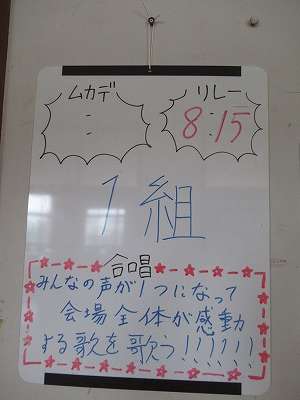 ムカデ
:
リレー
8:15
1組
合唱
みんなの声が1つになって
会場全体が感動
する歌を歌う!!!!!!